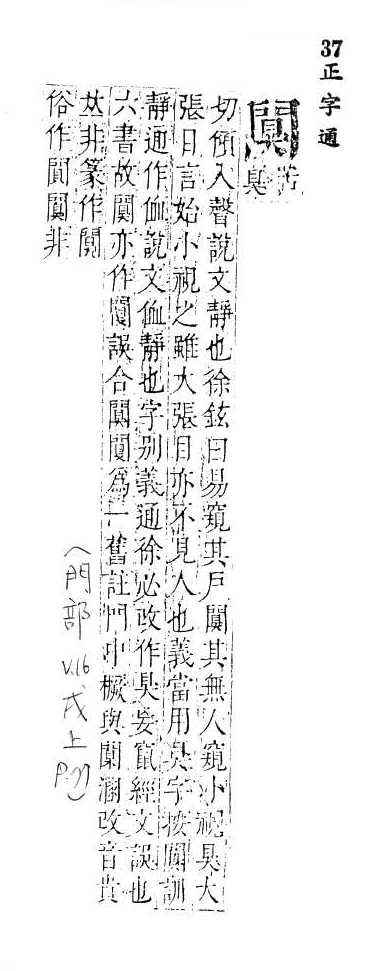 37 正字通
闃 苦狊
切傾入聲說文靜也徐鉉曰易窺其戶闃其無人窺小視狊大
張目言始小視之雖大張目亦不見人也義當用狊字按闃訓
靜通作侐說文侐靜也字別義通徐必改作狊妄竄經文誤也
六書故闃亦作誤合闃為一舊註門中橛與闑溷改音貴
𠀤非篆作
俗作非
(門部 v.16 戌上 P.27)